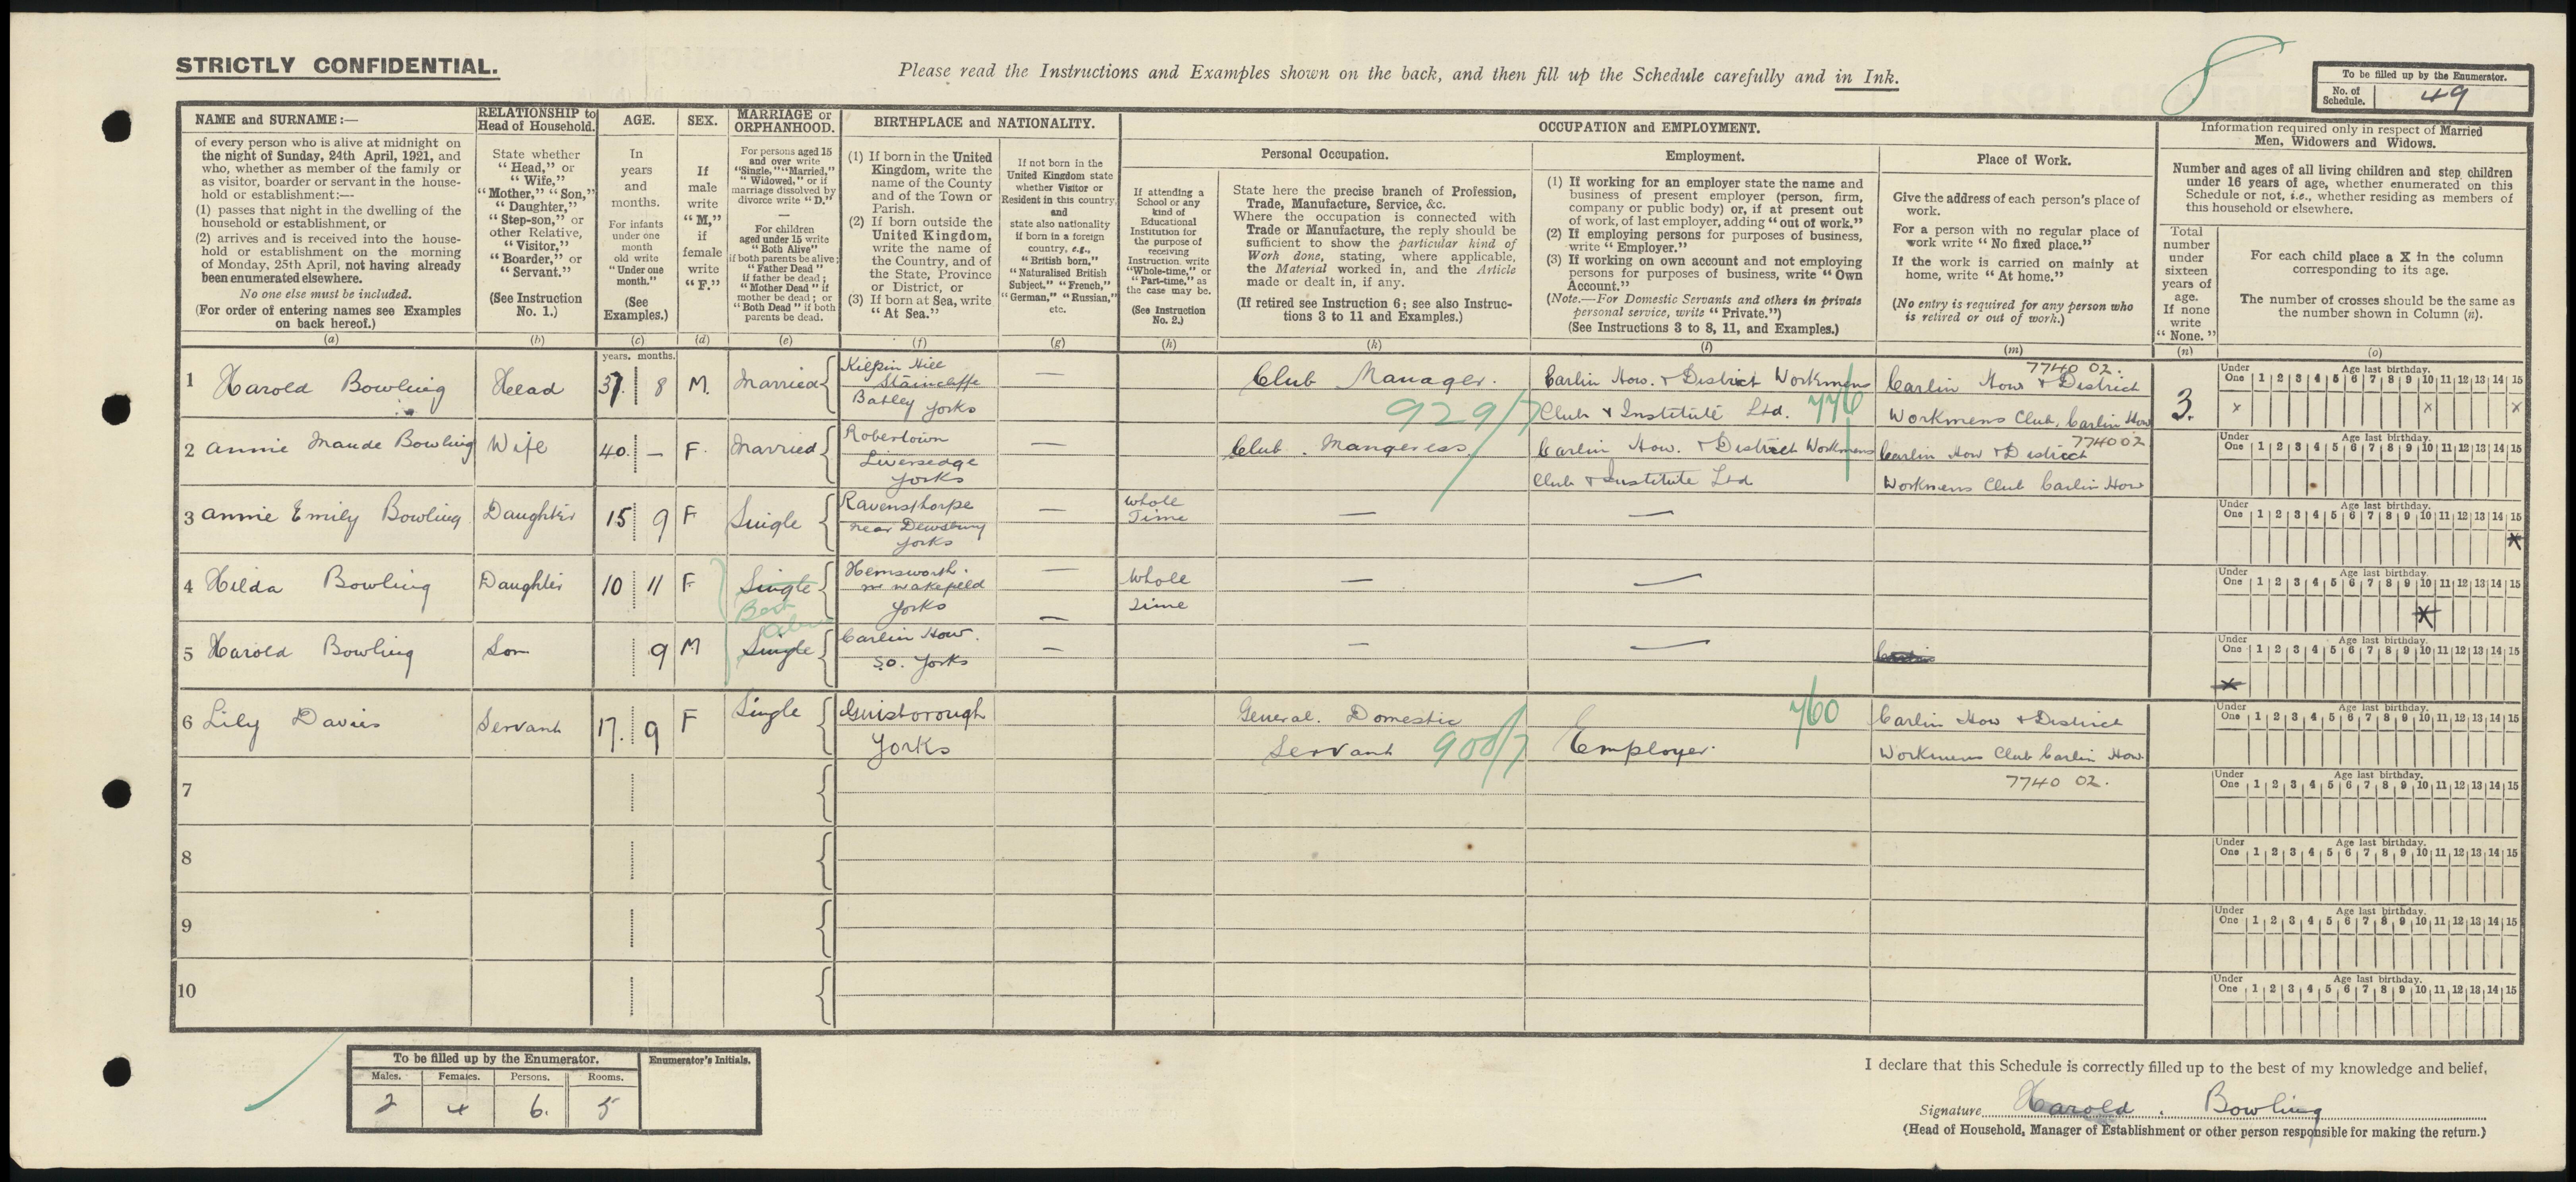 STRICTLY CONFIDENTIAL.
Please read the Instructions and Examples shown on the back, and then fill up the Schedule carefully and in Ink.
8
To be filled up by the Enumerator.
No. of Schedule. 49
NAME and SURNAME:—
of every person who is alive at midnight on
the night of Sunday, 24th April, 1921, and
who, whether as member of the family or
as visitor, boarder or servant in the house-
hold or establishment:—
(1) passes that night in the dwelling of the
household or establishment, or
(2) arrives and is received into the house-
hold or establishment on the morning
of Monday, 25th April, not having already
been enumerated elsewhere.
No one else must be included.
(For order of entering names see Examples
on back hereof.)
(a)
RELATIONSHIP to
Head of Household.
State whether
"Head," or
"Wife,"
"Mother," "Son,"
"Daughter,"
"Step-son," or
other Relative,
"Visitor,"
"Boarder," or
"Servant."
(See Instruction
No. 1.)
(b)
AGE.
In
years
and
months.
For infants
under one
month
old write
"Under one
month."
(See
Examples.)
(c)
SEX.
If
male
write
"M,"
if
female
write
"F."
(d)
MARRIAGE or
ORPHANHOOD.
For persons aged 15
and over write
"Single," "Married,"
"Widowed," or if
marriage dissolved by
divorce write "D."
—
For children
aged under 15 write
"Both Alive"
if both parents be alive;
"Father Dead"
if father be dead;
"Mother Dead" if
mother be dead; or
"Both Dead" if both
parents be dead.
(e)
BIRTHPLACE and NATIONALITY.
(1) If born in the United
Kingdom, write the
name of the County
and of the Town or
Parish.
(2) If born outside the
United Kingdom,
write the name of
the Country, and of
the State, Province
or District, or
(3) If born at Sea, write
"At Sea."
(f)
If not born in the
United Kingdom state
whether Visitor or
Resident in this country,
and
state also nationality
if born in a foreign
country, e.g.,
"British born,"
"Naturalised British
Subject," "French,"
"German," "Russian,"
etc.
(g)
OCCUPATION and EMPLOYMENT.
If attending a
School or any
kind of
Educational
Institution for
the purpose of
receiving
Instruction, write
"Whole-time," or
"Part-time," as
the case may be.
(See Instruction
No. 2.)
(h)
Personal Occupation.
State here the precise branch of Profession,
Trade, Manufacture, Service, &c.
Where the occupation is connected with
Trade or Manufacture, the reply should be
sufficient to show the particular kind of
Work done, stating, where applicable,
the Material worked in, and the Article
made or dealt in, if any.
(If retired see Instruction 6; see also Instruc-
tions 3 to 11 and Examples.)
(k)
Employment.
(1) If working for an employer state the name and
business of present employer (person, firm,
company or public body) or, if at present out
of work, of last employer, adding "out of work."
(2) If employing persons for purposes of business,
write "Employer."
(3) If working on own account and not employing
persons for purposes of business, write "Own
Account."
(Note.—For Domestic Servants and others in private
personal service, write "Private.")
(See Instructions 3 to 8, 11, and Examples.)
(l)
Place of Work.
Give the address of each person's place of
work.
For a person with no regular place of
work write "No fixed place."
If the work is carried on mainly at
home, write "At home."
(No entry is required for any person who
is retired or out of work.)
(m)
Information required only in respect of Married
Men, Widowers and Widows.
Number and ages of all living children and step children
under 16 years of age, whether enumerated on this
Schedule or not, i.e., whether residing as members of
this household or elsewhere.
Total
number
under
sixteen
years of
age.
If none
write
"None."
(n)
For each child place a X in the column
corresponding to its age.
The number of crosses should be the same as
the number shown in Column (n).
(o)
years. months.
1 Harold Bowling Head 37 8 M. Married
Kilpin Hill
Staincliffe
Batley Yorks
—
Club Manager.
929/7
Carlin How. & District Workmens
Club & Institute Ltd. 776
7740 02.
Carlin How & District
Workmens Club, Carlin How
3.
Under One Age last birthday. 1 2 3 4 5 6 7 8 9 10 11 12 13 14 15
x x x
2 Annie Maude Bowling Wife 40. — F. Married
Robertown
Liversedge
Yorks
—
Club. Mangeress.
Carlin How. & District Workmens
Club & Institute Ltd
7740 02
Carlin How & District
Workmens Club Carlin How
Under One Age last birthday. 1 2 3 4 5 6 7 8 9 10 11 12 13 14 15
3 Annie Emily Bowling Daughter 15 9 F Single
Ravensthorpe
near Dewsbury
Yorks
—
Whole
Time
— —
Under One Age last birthday. 1 2 3 4 5 6 7 8 9 10 11 12 13 14 15
x
4 Hilda Bowling Daughter 10 11 F Single
Both
Alive
Hemsworth.
nr Wakefield
Yorks
—
Whole
Time
— —
Under One Age last birthday. 1 2 3 4 5 6 7 8 9 10 11 12 13 14 15
x
5 Harold Bowling Son 9 M Single
Carlin How.
SO. Yorks
—
— —
Under One Age last birthday. 1 2 3 4 5 6 7 8 9 10 11 12 13 14 15
x
6 Lily Davies Servant 17. 9 F Single
Guisborough
Yorks
General. Domestic
Servant 900/7
Employer. 760
Carlin How & District
Workmens Club Carlin How
7740 02.
Under One Age last birthday. 1 2 3 4 5 6 7 8 9 10 11 12 13 14 15
7
Under One Age last birthday. 1 2 3 4 5 6 7 8 9 10 11 12 13 14 15
8
Under One Age last birthday. 1 2 3 4 5 6 7 8 9 10 11 12 13 14 15
9
Under One Age last birthday. 1 2 3 4 5 6 7 8 9 10 11 12 13 14 15
10
Under One Age last birthday. 1 2 3 4 5 6 7 8 9 10 11 12 13 14 15
To be filled up by the Enumerator.
Enumerator's Initials.
Males. Females. Persons. Rooms.
2 4 6. 5
I declare that this Schedule is correctly filled up to the best of my knowledge and belief,
Signature Harold. Bowling
(Head of Household, Manager of Establishment or other person responsible for making the return.)